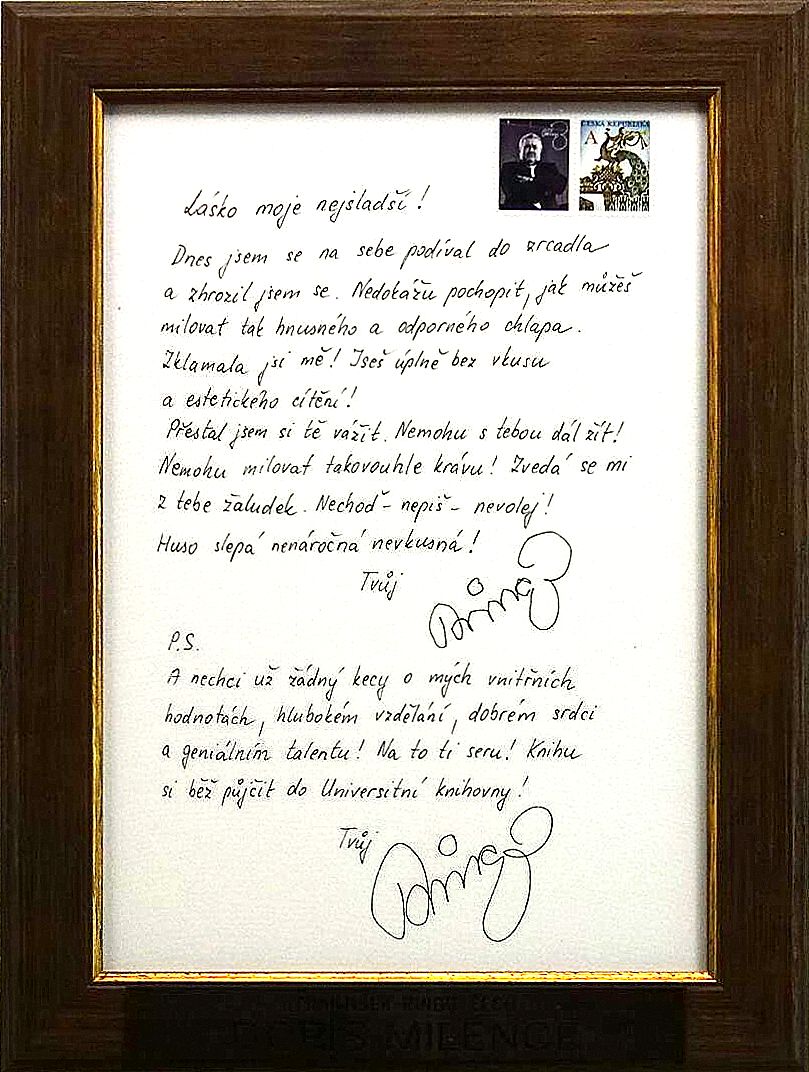 ČESKÁ REPUBLIKA
A
Lásko moje nejsladší!
Dnes jsem se na sebe podíval do zrcadla
a zhrozil jsem se. Nedokážu pochopit, jak můžeš
milovat tak hnusného a odporného chlapa.
Zklamala jsi mě! Jseš úplně bez vkusu
a estetického cítění!
Přestal jsem si tě vážit. Nemohu s tebou dál žít!
Nemohu milovat takovouhle krávu! Zvedá se mi
z tebe žaludek. Nechoď - nepiš - nevolej!
Huso slepá nenáročná nevkusná!
Tvůj
Ringo
P.S.
A nechci už žádný kecy o mých vnitřních
hodnotách, hlubokém vzdělání, dobrém srdci
a geniálním talentu! Na to ti seru! Knihu
si běž půjčit do Universitní knihovny!
Tvůj
Ringo
FRANTIŠEK RINGO ČECH
DOPIS MILENCE